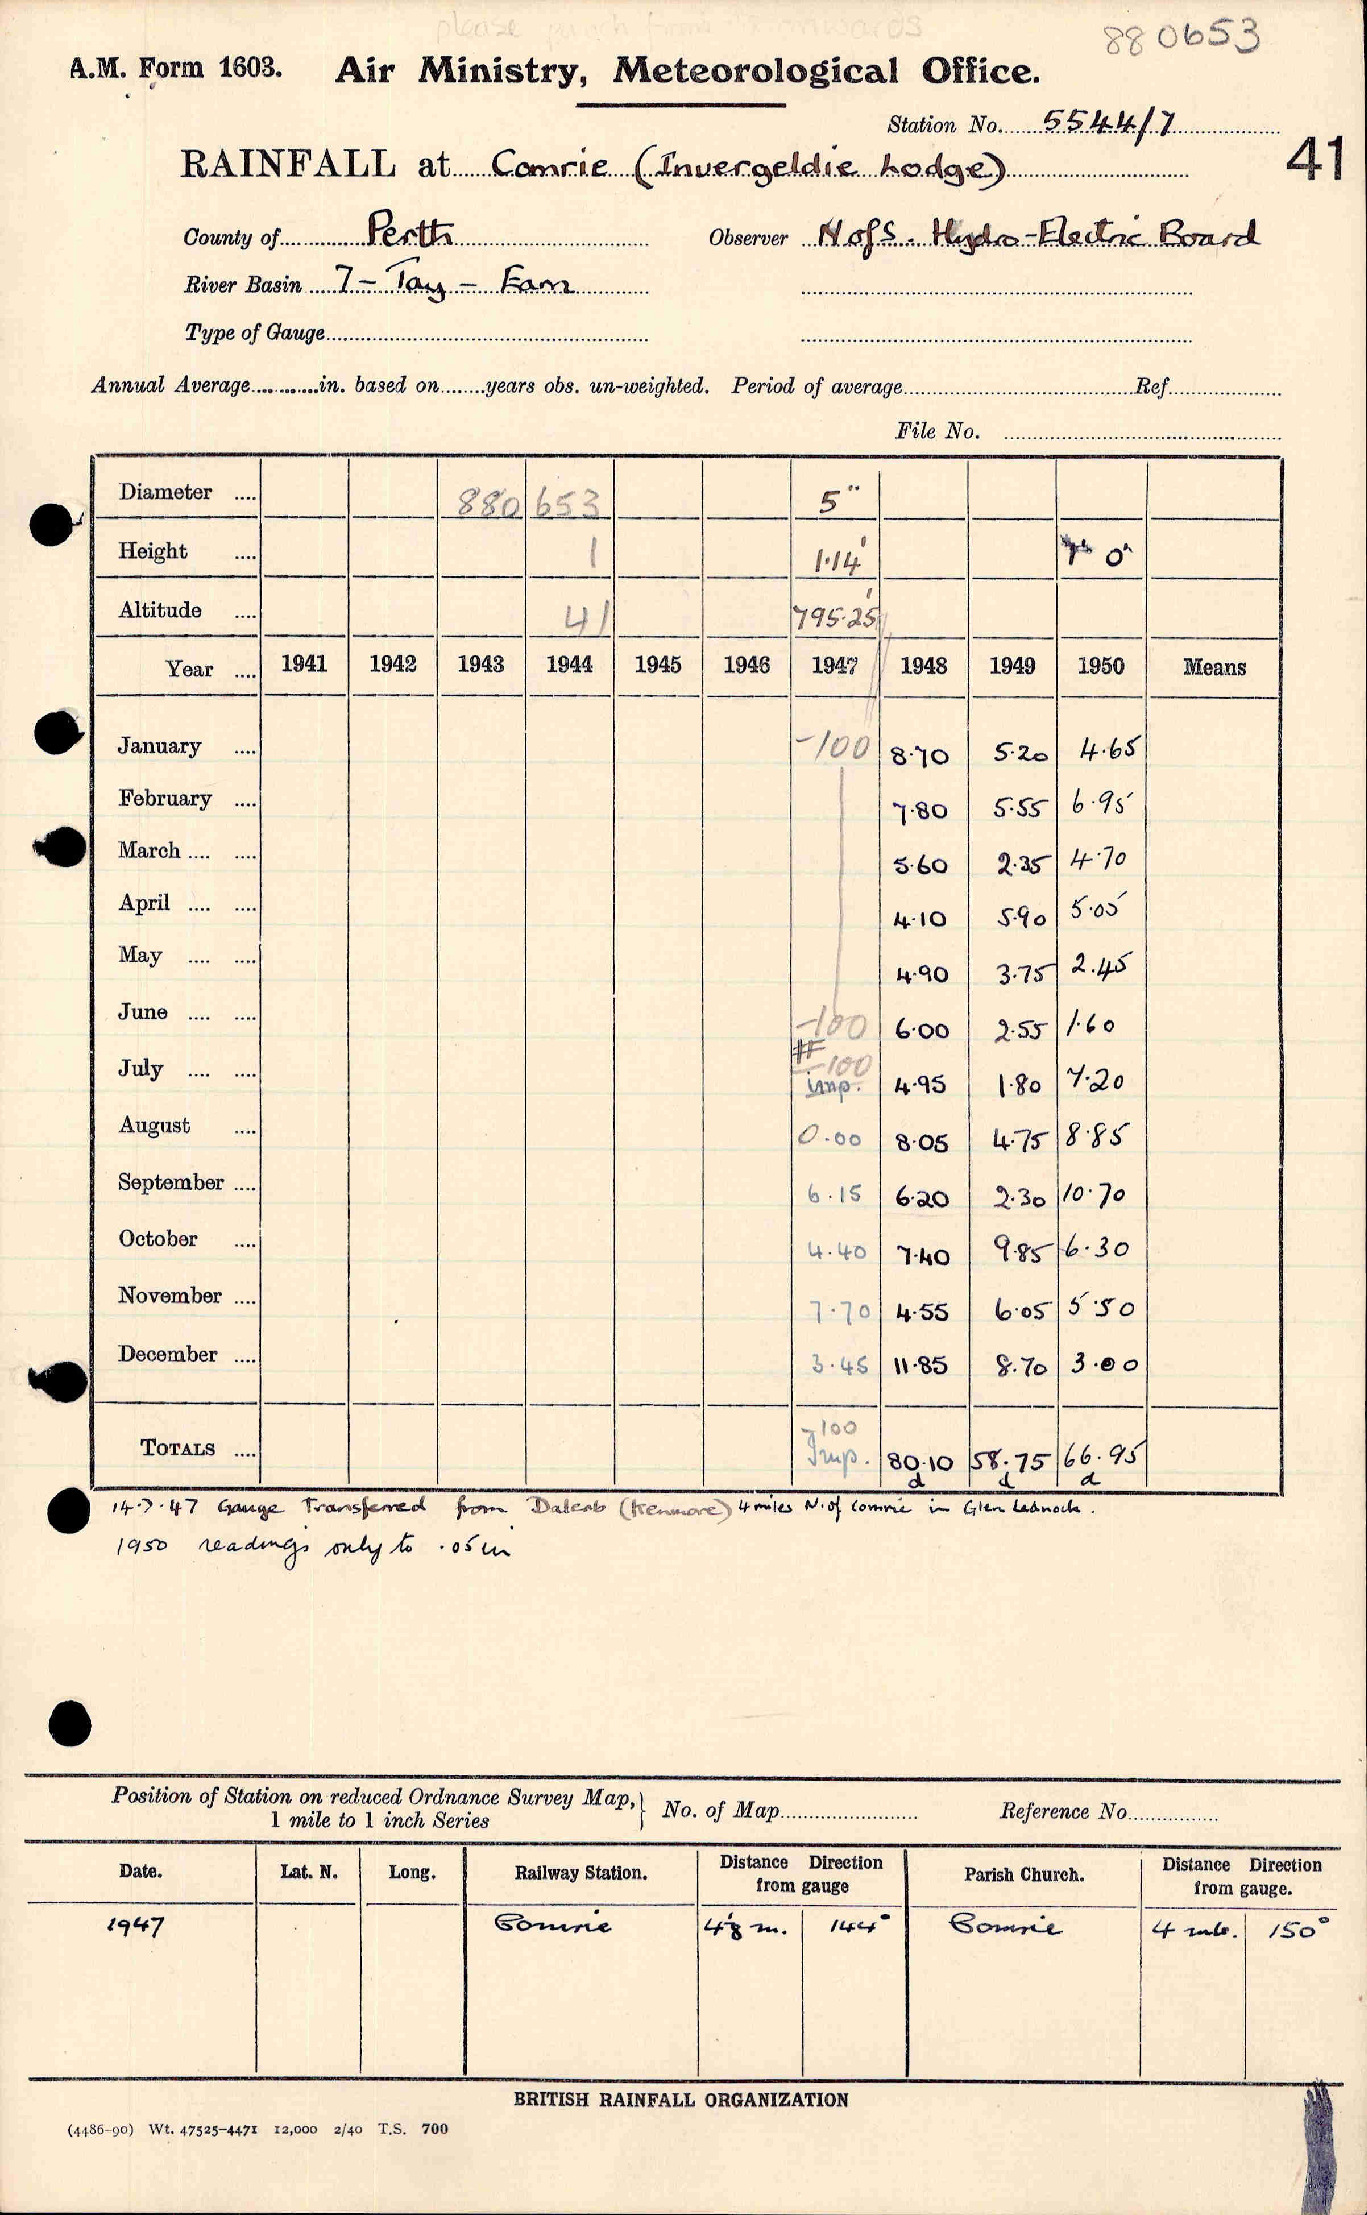 please punch from onwards
880653
A.M. Form 1603. Air Ministry, Meteorological Office.
Station No. 5544/7
41
RAINFALL at Comrie (Invergeldie Lodge)
County of Perth Observer N of S. Hydro-Electric Board
River Basin 7 - Tay - Earn
Type of Gauge
Annual Average in. based on years obs. un-weighted. Period of average Ref.
File No.
Diameter .... 880 653 5"
Height .... 1 1·14' 0"
Altitude .... 41 795·25'
Year .... 1941 1942 1943 1944 1945 1946 1947 1948 1949 1950 Means
January .... -100 8·70 5·20 4·65
February .... 7·80 5·55 6·95
March .... .... 5·60 2·35 4·70
April .... .... 4·10 5·90 5·05
May .... .... 4·90 3·75 2.45
June .... .... -100 6·00 2·55 1·60
July .... .... -100 imp. 4·95 1·80 7·20
August .... 0.00 8·05 4·75 8·85
September .... 6.15 6·20 2·30 10·70
October .... 4.40 7·40 9·85 6·30
November .... 7.70 4·55 6·05 5·50
December .... 3.45 11·85 8.70 3·00
TOTALS .... -100 Imp. 80·10 58·75 66·95
d d d
14·7·47 Gauge Transferred from (Kenmore) 4 miles N. of Comrie in Glen Lednock.
1950 readings only to ·05 in
Position of Station on reduced Ordnance Survey Map, 1 mile to 1 inch Series } No. of Map Reference No.
Date. Lat. N. Long. Railway Station. Distance Direction from gauge Parish Church. Distance Direction from gauge.
1947 Comrie m. 144° Comrie 4 mls. 150°
BRITISH RAINFALL ORGANIZATION
(4486-90) Wt. 47525-4471 12,000 2/40 T.S. 700